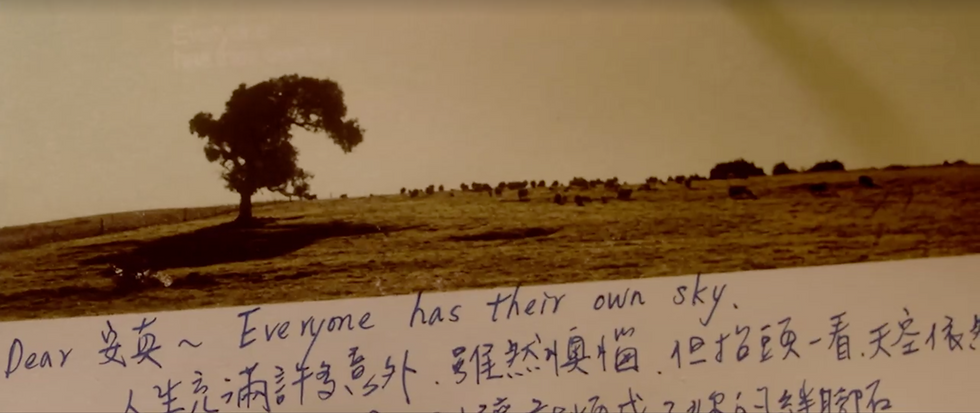 Dear 安真~ Everyone has their own sky.
人生充滿許多意外.雖然懊惱.但抬頭一看.天空依然
成了你的絆腳石